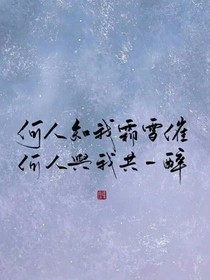 何人知我霜雪催
何人與我共一醉